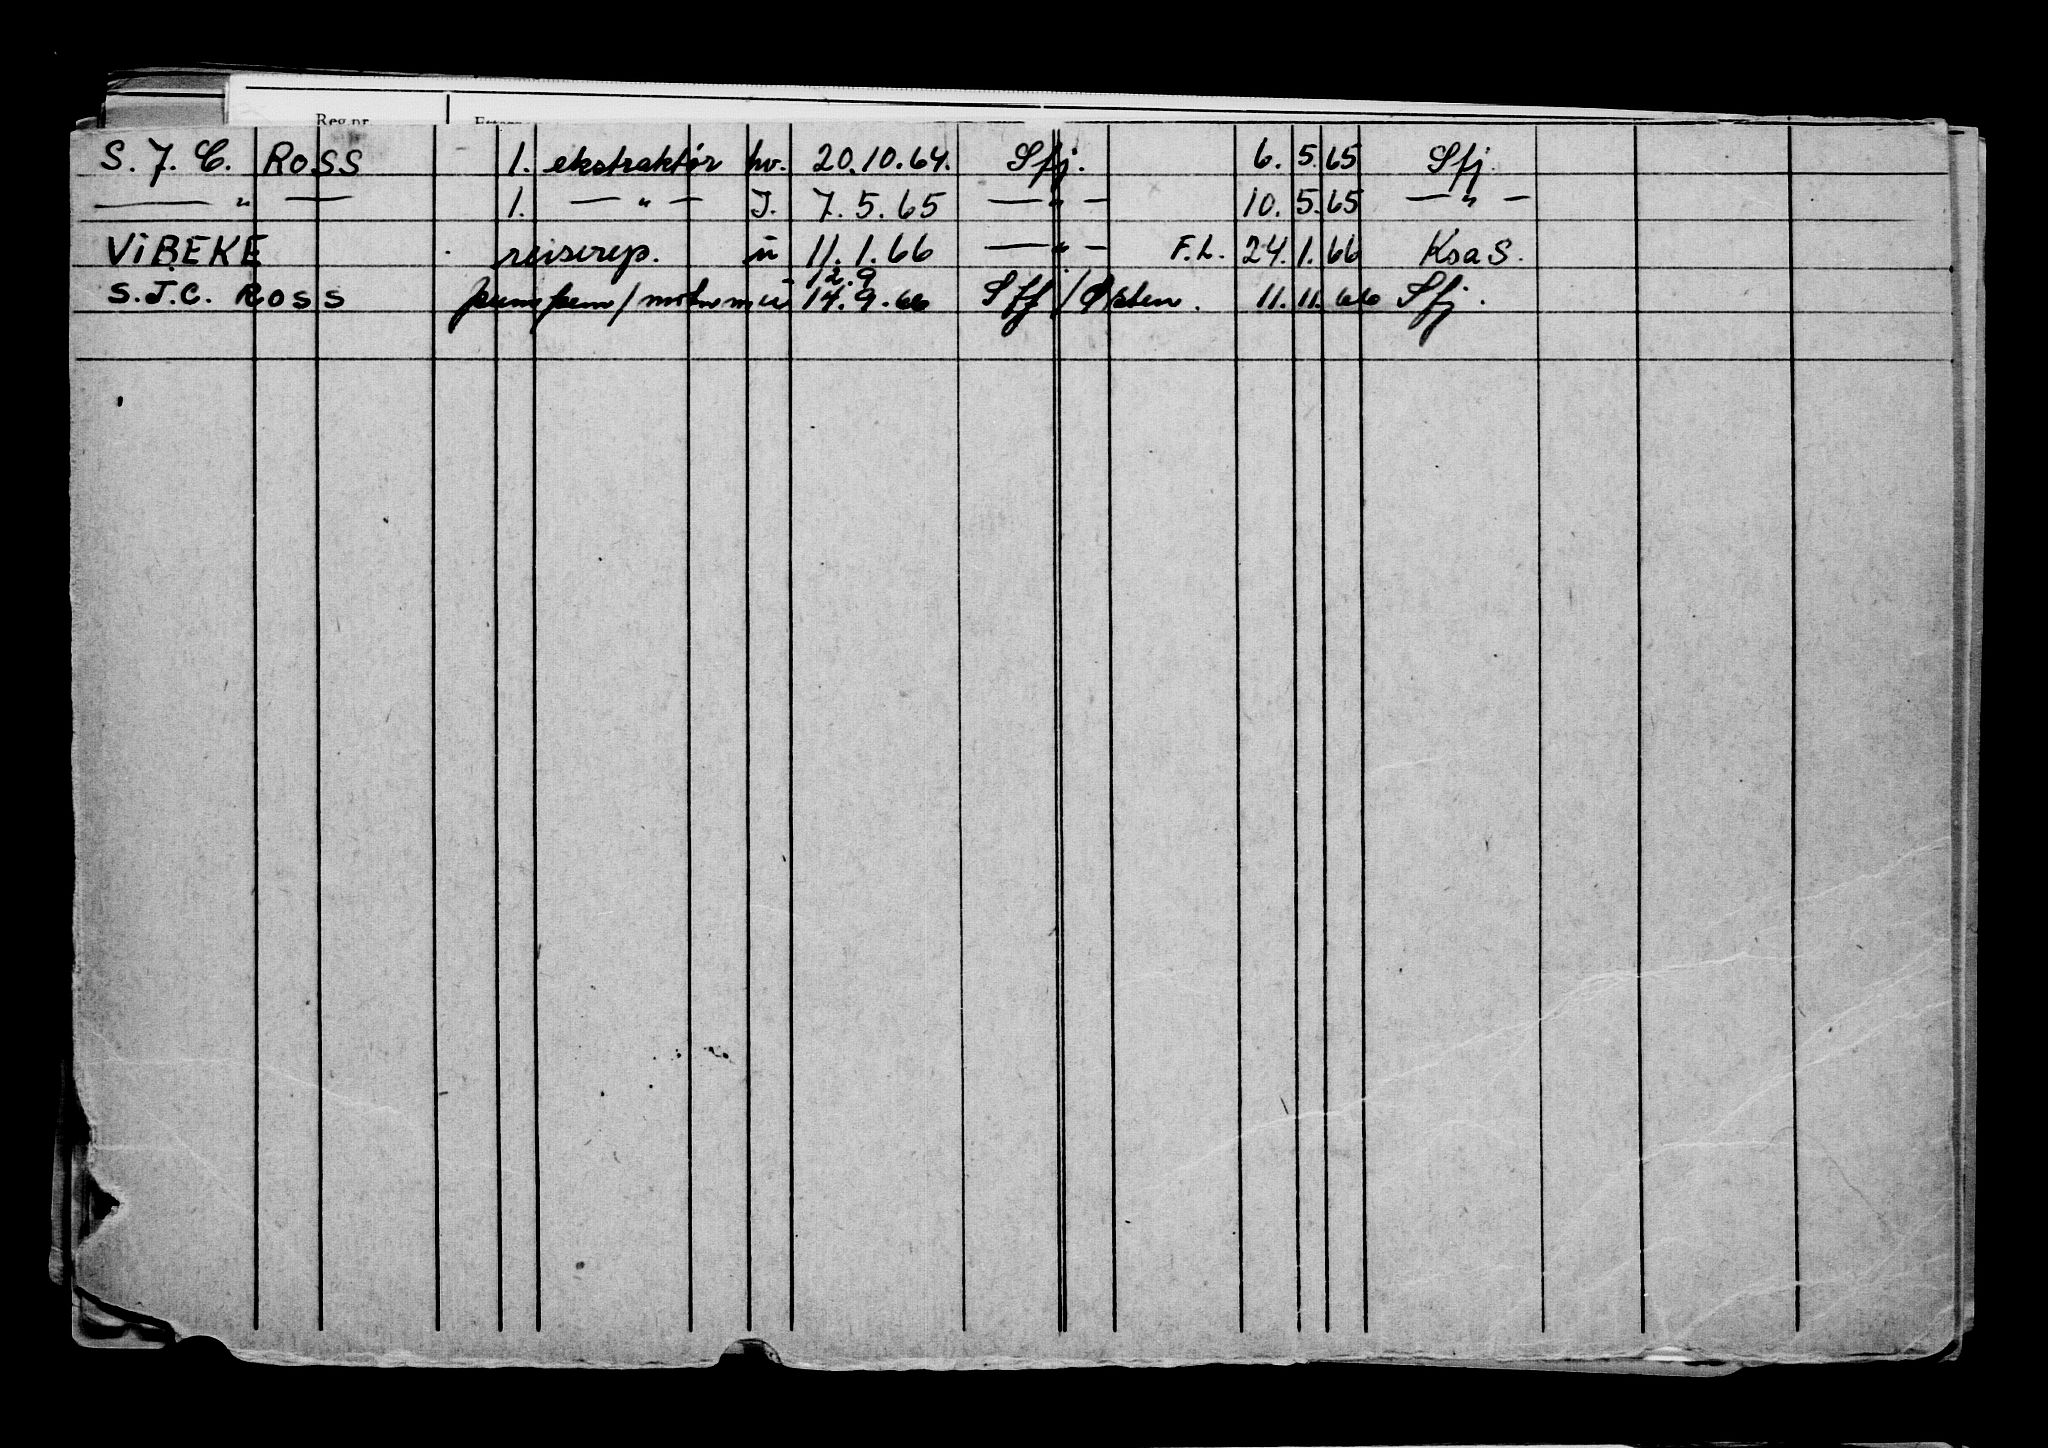 Reg.nr.
S. J. C. ROSS 1. ekstraktør hv. 20.10.64. Sfj. 6. 5. 65 Sfj.
— " — 1. — " — I. 7. 5. 65 — " — 10. 5. 65 — " —
ViBEKE reiserep. u 11. 1. 66 — " — F.L. 24. 1. 66 KsaS.
12.9
S.J.C. ROSS pumpem/motorm u 14. 9. 66 Sfj / Østen. 11. 11. 66 Sfj.